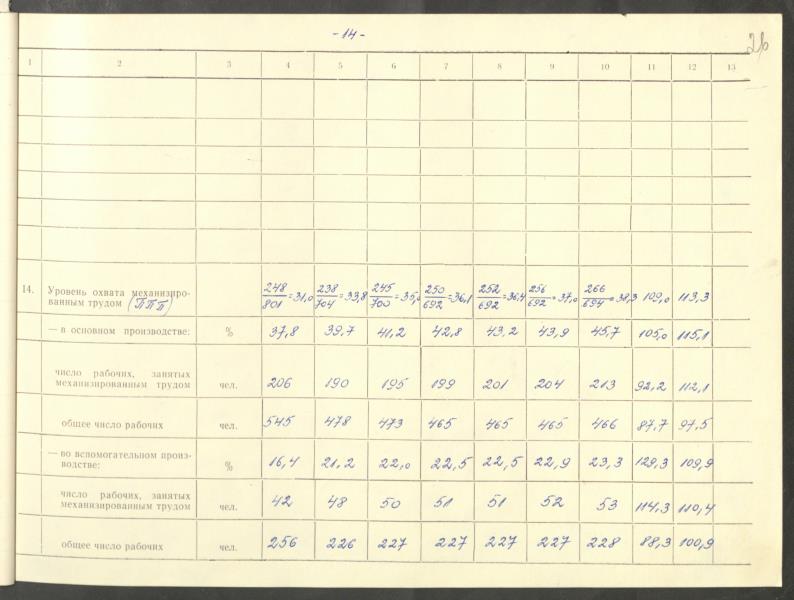 -14-
26
1 2 3 4 5 6 7 8 9 10 11 12 13
14. Уровень охвата механизиро-
ванным трудом (ППП) 248/801 = 31,0 238/704 = 33,8 245/700 = 35,0 250/692 = 36,1 252/692 = 36,4 256/692 = 37,0 266/694 = 38,3 109,0 113,3
— в основном производстве: % 37,8 39,7 41,2 42,8 43,2 43,9 45,7 105,0 115,1
число рабочих, занятых
механизированным трудом чел. 206 190 195 199 201 204 213 92,2 112,1
общее число рабочих чел. 545 478 473 465 465 465 466 87,7 97,5
— во вспомогательном произ-
водстве: % 16,4 21,2 22,0 22,5 22,5 22,9 23,3 129,3 109,9
число рабочих, занятых
механизированным трудом чел. 42 48 50 51 51 52 53 114,3 110,4
общее число рабочих чел. 256 226 227 227 227 227 228 88,3 100,9